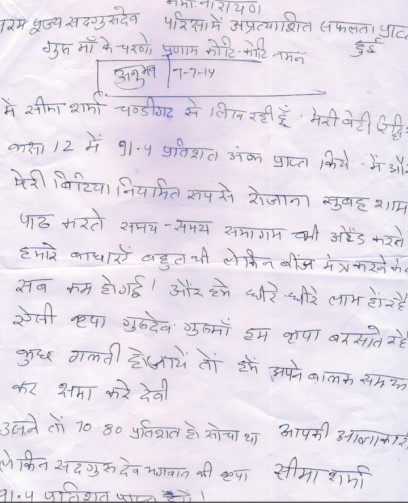 नमो नारायण
परम पूज्य सदगुरुदेव
परिक्षा में अप्रत्याशित सफलता प्राप्त हुई
गुरु माँ के चरणो प्रणाम कोटि-कोटि नमन
अनुभव 7-7-14
में सीमा शर्मा चण्डीगढ से लिख रही हूँ मेरी बेटी
कक्षा 12 में 91.4 प्रतिशत अंक प्राप्त किये - मैं और
मेरी बिटिया नियमित रूप से रोजाना सुबह शाम
पाठ करते समय-समय समागम भी अटैंड करते
हमारे बाधाएँ बहुत थी लेकिन बीज मंत्र करने के
सब कम हो गई। और हमे धीरे-धीरे लाभ हो रहे
ऐसी कृपा गुरुदेव गुरुमाँ हम कृपा बरसाते रहे
कुछ गलती हो जायें तो हमें अपने बालक समझ
कर क्षमा करे देवी
उसने तो 70 80 प्रतिशत ही सोचा था
लेकिन सदगुरु देव भगवान की कृपा
91.4 प्रतिशत प्राप्त
आपकी आज्ञाकारी
सीमा शर्मा